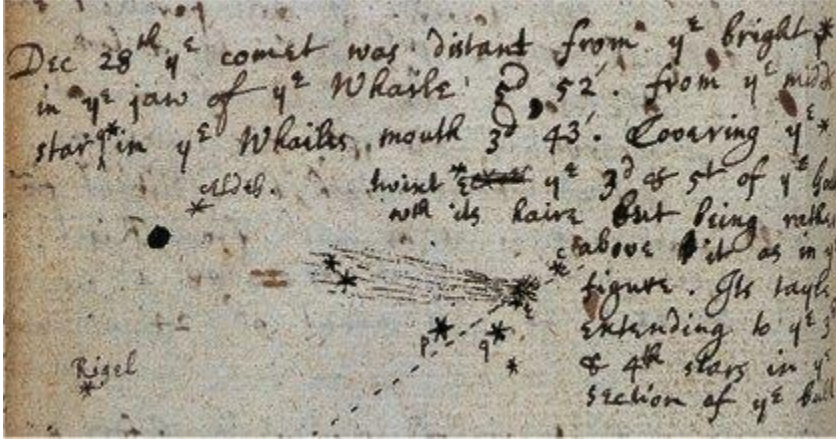 Dec 28th yᵉ comet was distant from yᵉ bright *
in yᵉ jaw of yᵉ Whaile 5d 52'. from yᵉ midd
star q* in yᵉ Whailes mouth 3d 43'. Covering yᵉ *
Aldeb. twixt * ε yᵉ 3d & 5t of yᵉ
wth its haire but being rath
above it as in
c
figure. Its tayle
ε
extending to yᵉ 3
p q
Rigel & 4th stars in yᵉ
section of yᵉ